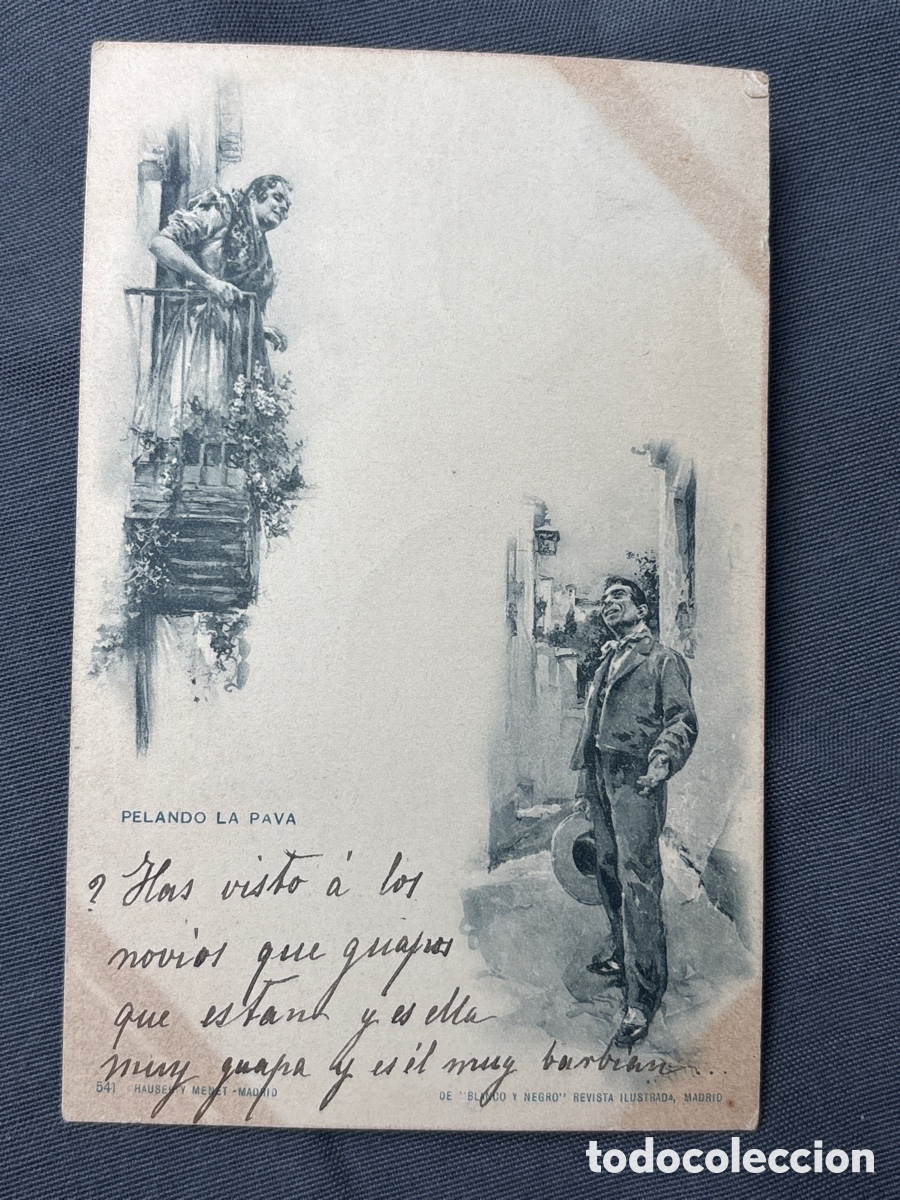 PELANDO LA PAVA
? Has visto á los
novios que guapos
que estan y es ella
muy guapa y es él muy barbian...
541 HAUSER Y MENET.-MADRID
DE "BLANCO Y NEGRO" REVISTA ILUSTRADA, MADRID
todocoleccion